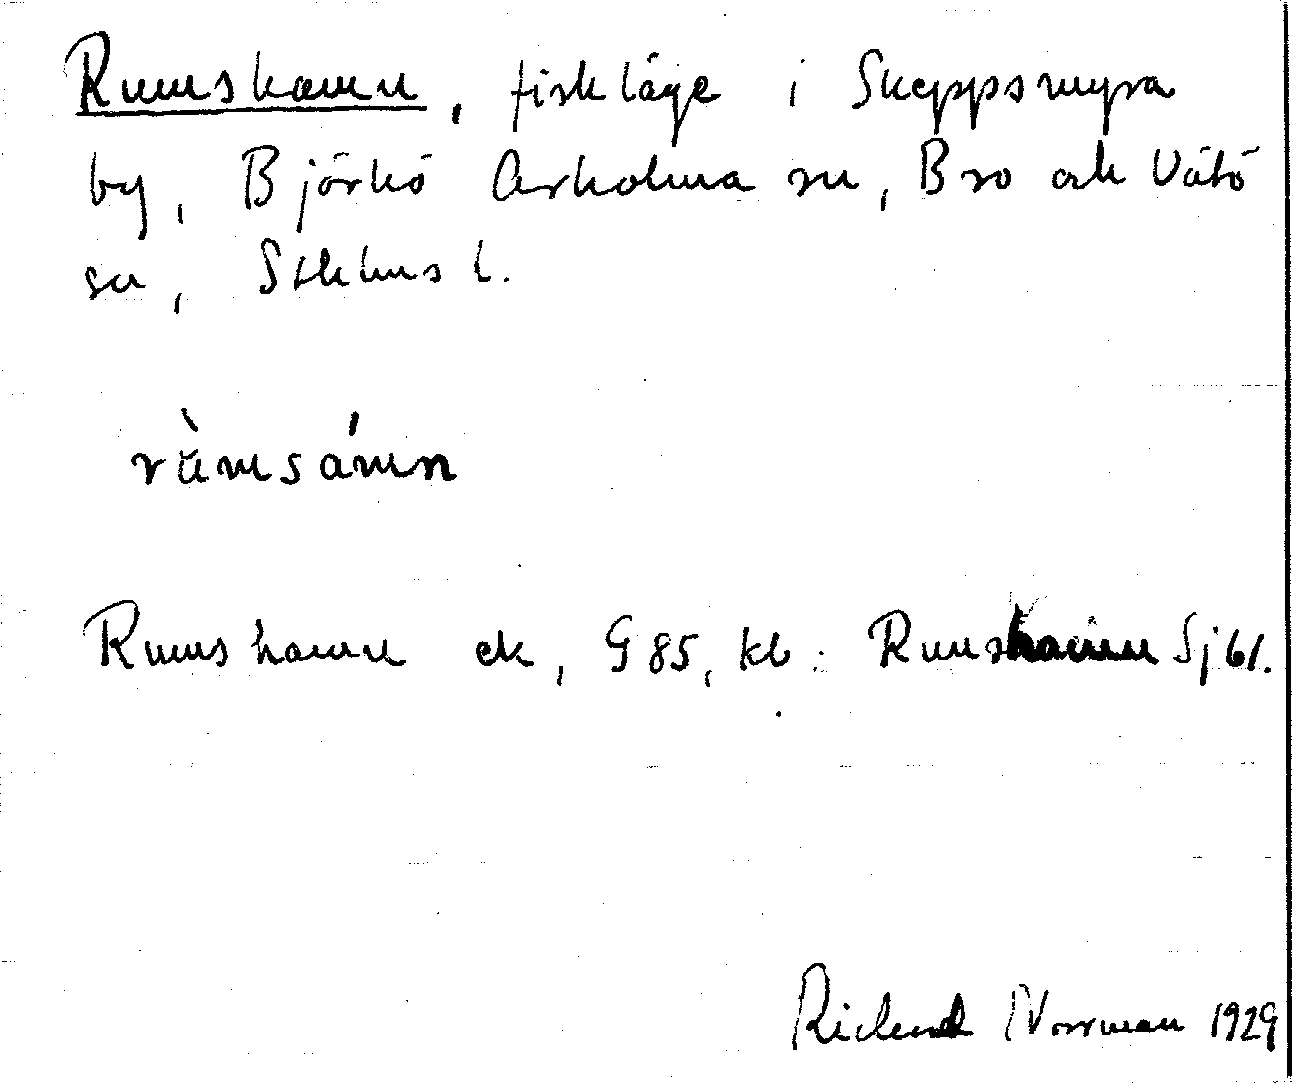 Rumshamn, fiskläge i Skeppsmyra
by, Björkö Arholma sn, Bro och Vätö
sn, Sthlms l.
ràmsámn
Rumshamn ek, G 85, kb. Rumshamn Sj 61.
Rickard Norrman 1929